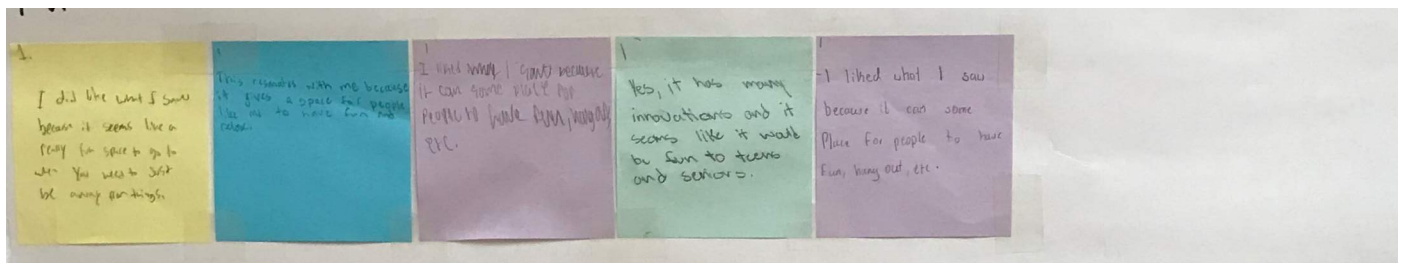 1.
I did like what I saw
because it seems like a
really fun space to go to
when you need to just
be away from things.
1
This resonates with me because
it gives a space for people
like us to have fun and
relax.
1
I liked what I saw because
it can some place for
people to have fun, hang out,
etc.
1
Yes, it has many
innovations and it
seems like it would
be fun to teens
and seniors.
1
-I liked what I saw
because it can some
Place for people to have
fun, hang out, etc.